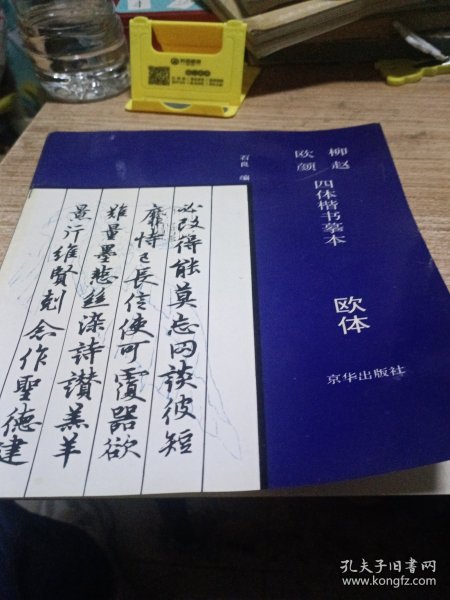 欧颜
柳赵
四体楷书摹本
石良 编
欧体
京华出版社
必改得能莫忘罔談彼短
靡恃己長信使可覆器欲
難量墨悲絲染詩讚羔羊
景行維賢剋念作聖德建
孔夫子旧书网
www.kongfz.com